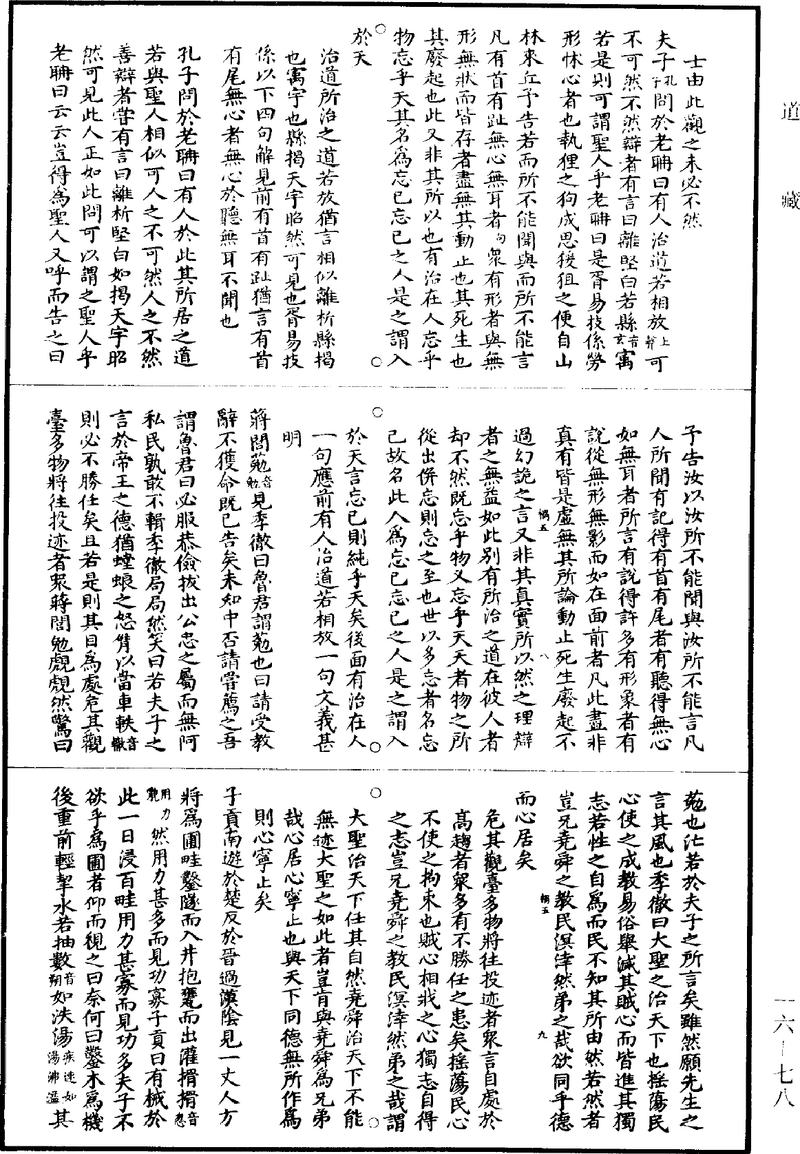 道藏
士由此觀之未必不然
夫子孔子問於老聃曰有人治道若相放上聲可
不可然不然辯者有言曰離堅白若縣音玄寓
若是則可謂聖人乎老聃曰是胥易技係勞
形怵心者也執狸之狗成思猨狙之便自山
林來丘予告若而所不能聞與而所不能言
凡有首有趾無心無耳者句衆有形者與無
形無狀而皆存者盡無其動止也其死生也
其廢起也此又非其所以也有治在人忘乎
物忘乎天其名爲忘己忘己之人是之謂入
於天
治道所治之道若放猶言相似離析縣揭
也寓宇也縣揭天宇昭然可見也胥易技
係以下四句解見前有首有趾猶言有首
有尾無心者無心於聽無耳不聞也
孔子問於老聃曰有人於此其所居之道
若與聖人相似可人之不可然人之不然
善辯者嘗有言曰離析堅白如揭天宇昭
然可見此人正如此問可以謂之聖人乎
老聃曰云云豈得爲聖人又呼而告之曰
予告汝以汝所不能聞與汝所不能言凡
人所聞有記得有首有尾者有聽得無心
如無耳者所言有說得許多有形象者有
說從無形無影而如在面前者凡此盡非
真有皆是虛無其所論動止死生廢起不
過幻詭之言又非其真實所以然之理辯
者之無益如此別有所治之道在彼人者
却不然既忘乎物又忘乎天天者物之所
從出併忘則忘之至也世以多忘者名忘
己故名此人爲忘己忘己之人是之謂入
於天言忘己則純乎天矣後面有治在人
一句應前有人治道若相放一句文義甚
明
蔣閭葂音勉見季徹曰魯君謂葂也曰請受教
辭不獲命既已告矣未知中否請嘗薦之吾
謂魯君曰必服恭儉拔出公忠之屬而無阿
私民孰敢不輯季徹局局然笑曰若夫子之
言於帝王之德猶螳蜋之怒臂以當車軼音轍
則必不勝任矣且若是則其自爲處危其觀
臺多物將往投迹者衆蔣閭勉覤覤然驚曰
葂也汒若於夫子之所言矣雖然願先生之
言其風也季徹曰大聖之治天下也搖蕩民
心使之成教易俗舉滅其賊心而皆進其獨
志若性之自爲而民不知其所由然若然者
豈兄堯舜之教民溟涬然弟之哉欲同乎德
而心居矣
危其觀臺多物將往投迹者衆言自處於
高趨者衆多有不勝任之患矣搖蕩民心
不使之拘束也賊心相戕之心獨志自得
之志豈兄堯舜之教民溟涬然弟之哉謂
大聖治天下任其自然堯舜治天下不能
無迹大聖之如此者豈肯與堯舜爲兄弟
哉心居心寧止也與天下同德無所作爲
則心寧止矣
子貢南遊於楚反於晉過漢陰見一丈人方
將爲圃畦鑿隧而入井抱甕而出灌搰搰用力貌然用力甚多而見功寡子貢曰有械於
此一日浸百畦用力甚寡而見功多夫子不
欲乎爲圃者仰而視之曰奈何曰鑿木爲機
後重前輕挈水若抽數音朔如泆湯疾速如湯沸溢其
惧五
八
惧五
九
一六—七八